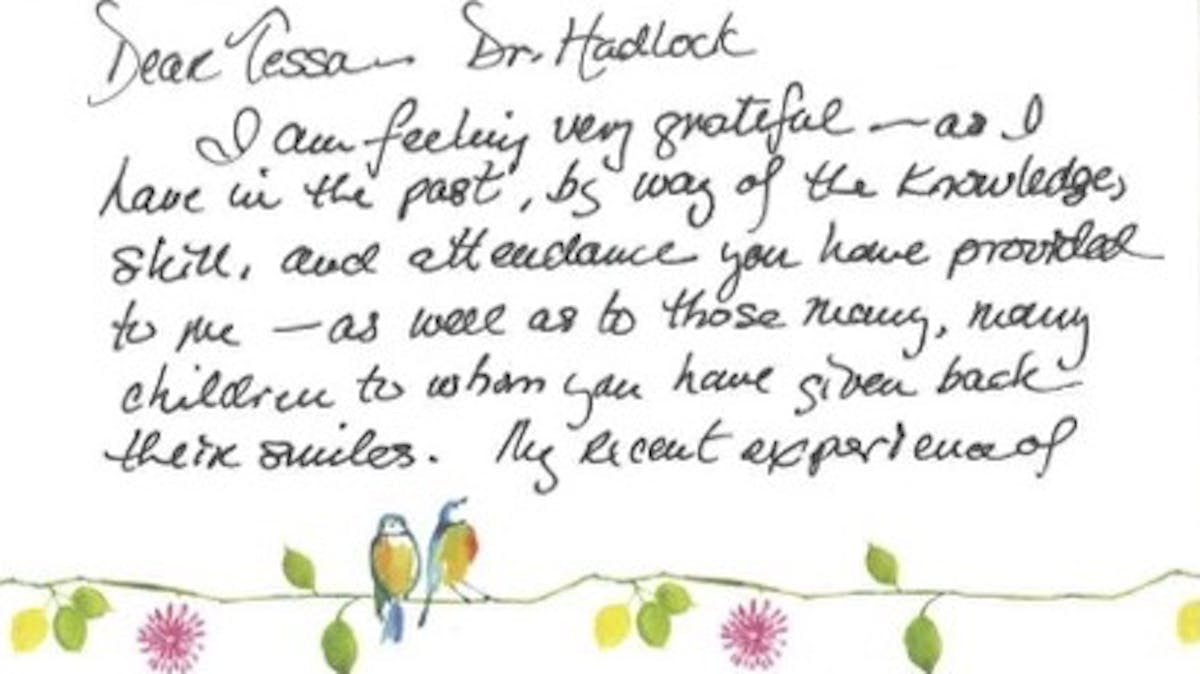 Dear Tessa — Dr. Hadlock
I am feeling very grateful — as I
have in the past, by way of the knowledge,
skill, and attendance you have provided
to me — as well as to those many, many
children to whom you have given back
their smiles. My recent experience of